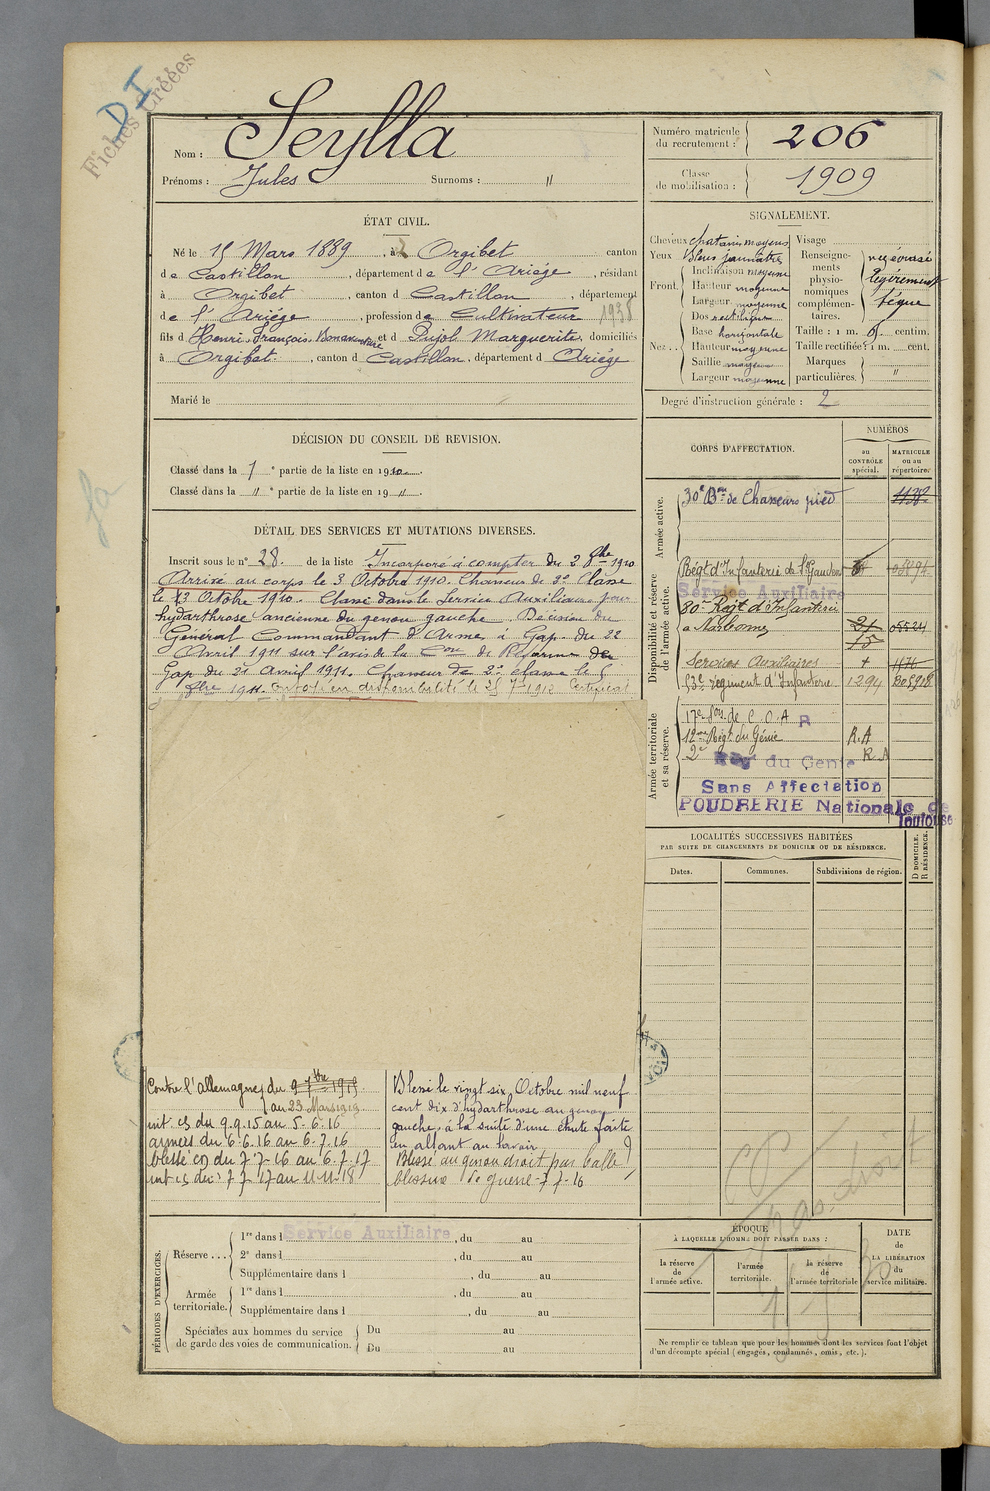 Fiches créées
D I
Nom : Seylla
Prénoms : Jules Surnoms : "
Numéro matricule du recrutement : 206
Classe de mobilisation : 1909
ÉTAT CIVIL.
Né le 15 Mars 1889, à Orgibet canton
de Castillon, département de l'Ariège, résidant
à Orgibet, canton d Castillon, département
de l'Ariège, profession de Cultivateur 1938
fils d Henri, François, et d Pujol Marguerite, domiciliés
à Orgibet, canton d Castillon, département d Ariège
Marié le
SIGNALEMENT.
Cheveux chatains moyens
Yeux bleus jaunâtre
Front. Inclinaison moyenne
Hauteur moyenne
Largeur moyenne
Nez. Dos rectiligne
Base horizontale
Hauteur moyenne
Saillie moyenne
Largeur moyenne
Visage
Renseignements physionomiques complémentaires.
légèrement
Taille : 1 m. 6 centim.
Taille rectifiée : 1 m. cent.
Marques particulières. "
Degré d'instruction générale : 2
DÉCISION DU CONSEIL DE REVISION.
Classé dans la 1e partie de la liste en 1910.
Classé dans la " e partie de la liste en 19 "
DÉTAIL DES SERVICES ET MUTATIONS DIVERSES.
Inscrit sous le no 28. de la liste Incorporé à compter du 2 8bre 1910
Arrivé au corps le 3 Octobre 1910. Chasseur de 2e Classe
le 3 Octobre 1910. Classé dans le Service Auxiliaire pour
hydarthrose ancienne du genou gauche. Décision du
Général Commandant d'Armes à Gap du 22
Avril 1911 sur l'avis de la Con de Réforme de
Gap du 21 Avril 1911. Chasseur de 2e classe le
1911. en disponibilité le 25 7bre 1912 Certificat
CORPS D'AFFECTATION.
NUMÉROS
au CONTRÔLE spécial.
MATRICULE ou au répertoire.
Armée active.
30e Bon de Chasseurs à pied 1138
Disponibilité et réserve de l'armée active.
Régt d'Infanterie de St Gaudens
Service Auxiliaire
80e Régt d'Infanterie
à Narbonne 05524
Services Auxiliaires + 1176
53e régiment d'Infanterie 1294
Armée territoriale et sa réserve.
17e Son de C O A R
12me Régt du Génie R.A
2e Rég du Génie R A
Sans Affectation
POUDRERIE Nationale de Toulouse
LOCALITÉS SUCCESSIVES HABITÉES
PAR SUITE DE CHANGEMENTS DE DOMICILE OU DE RÉSIDENCE.
Dates.
Communes.
Subdivisions de région.
D DOMICILE. R RÉSIDENCE.
Contre l'allemagne du 9 7bre 1915
au 23 Mars 1919
int. cs du 9.9.15 au 5.6.16
armées du 6.6.16 au 6.7.16
blessé cs du 7.7.16 au 6.7.17
int cs du 7 7 17 au 11.11.18
Blessé le vingt six Octobre mil neuf
cent dix d'hydarthrose au genou
gauche, à la suite d'une chute faite
en allant au lavoir
Blessé au genou droit par balle
blessure de guerre 7-7-16
PÉRIODES D'EXERCICES.
Réserve... 1re dans l Service Auxiliaire, du au
2e dans l, du au
Supplémentaire dans l, du au
Armée territoriale. 1re dans l, du au
Supplémentaire dans l, du au
Spéciales aux hommes du service de garde des voies de communication. Du au
Du au
ÉPOQUE
À LAQUELLE L'HOMME DOIT PASSER DANS :
la réserve de l'armée active.
l'armée territoriale.
la réserve de l'armée territoriale
DATE de LA LIBÉRATION du service militaire.
pas droit
Ne remplir ce tableau que pour les hommes dont les services font l'objet
d'un décompte spécial (engagés, condamnés, omis, etc.).